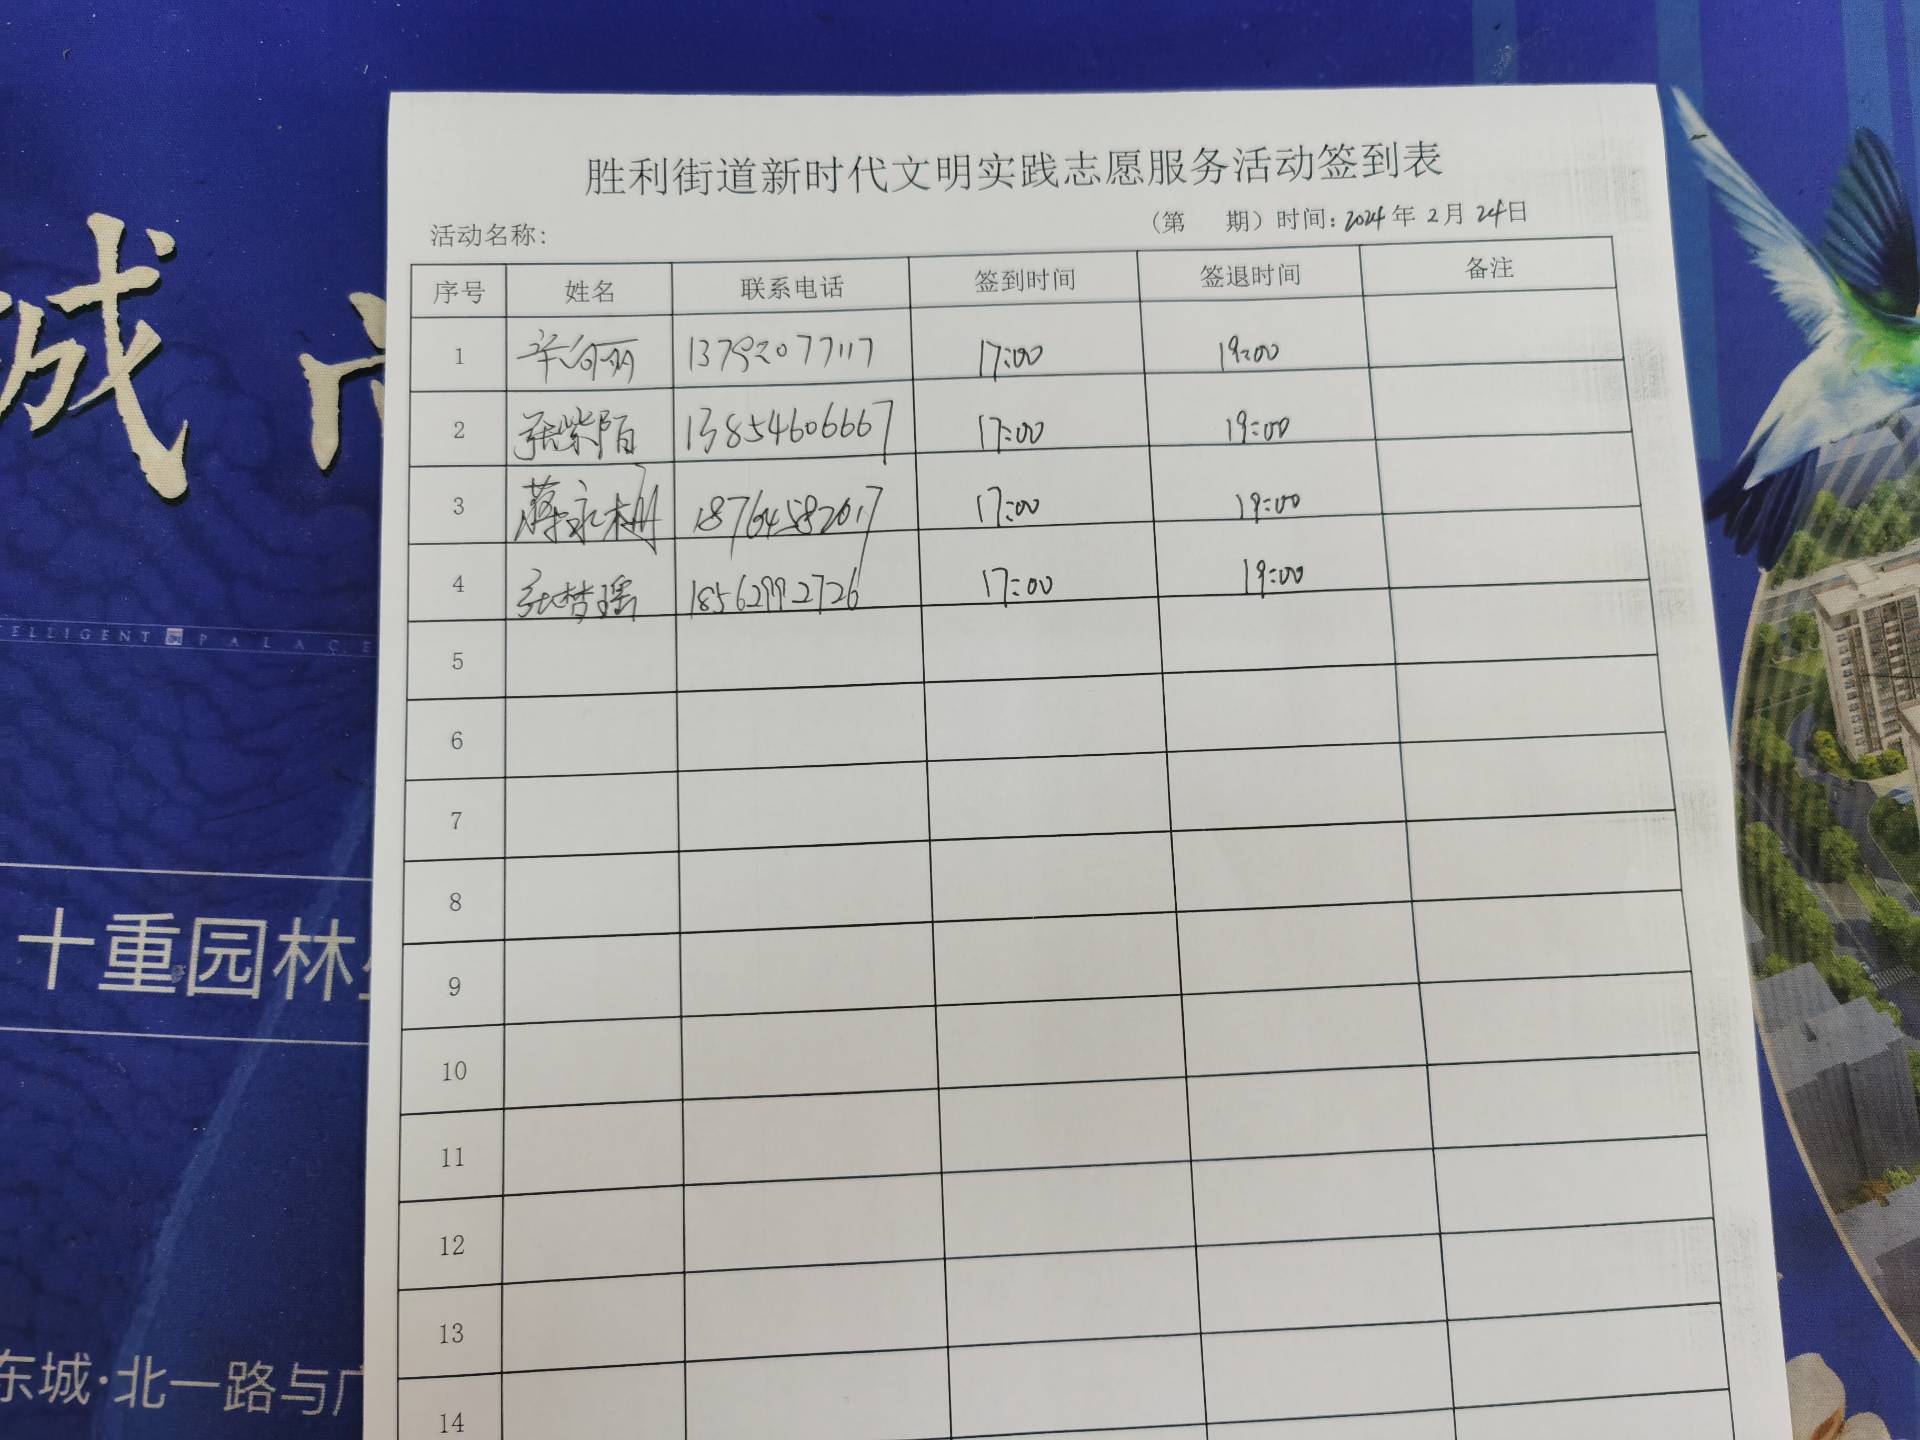 胜利街道新时代文明实践志愿服务活动签到表
活动名称: (第 期) 时间: 2024年 2月 24日
序号 姓名 联系电话 签到时间 签退时间 备注
1 13792077117 17:00 19:00
2 张紫陌 13854606667 17:00 19:00
3 蔡永树 18764582017 17:00 19:00
4 张梦瑶 18562992726 17:00 19:00
5
6
7
8
9
10
11
12
13
14
城
ELLIGENT PALACE
十重园林
东城·北一路与广